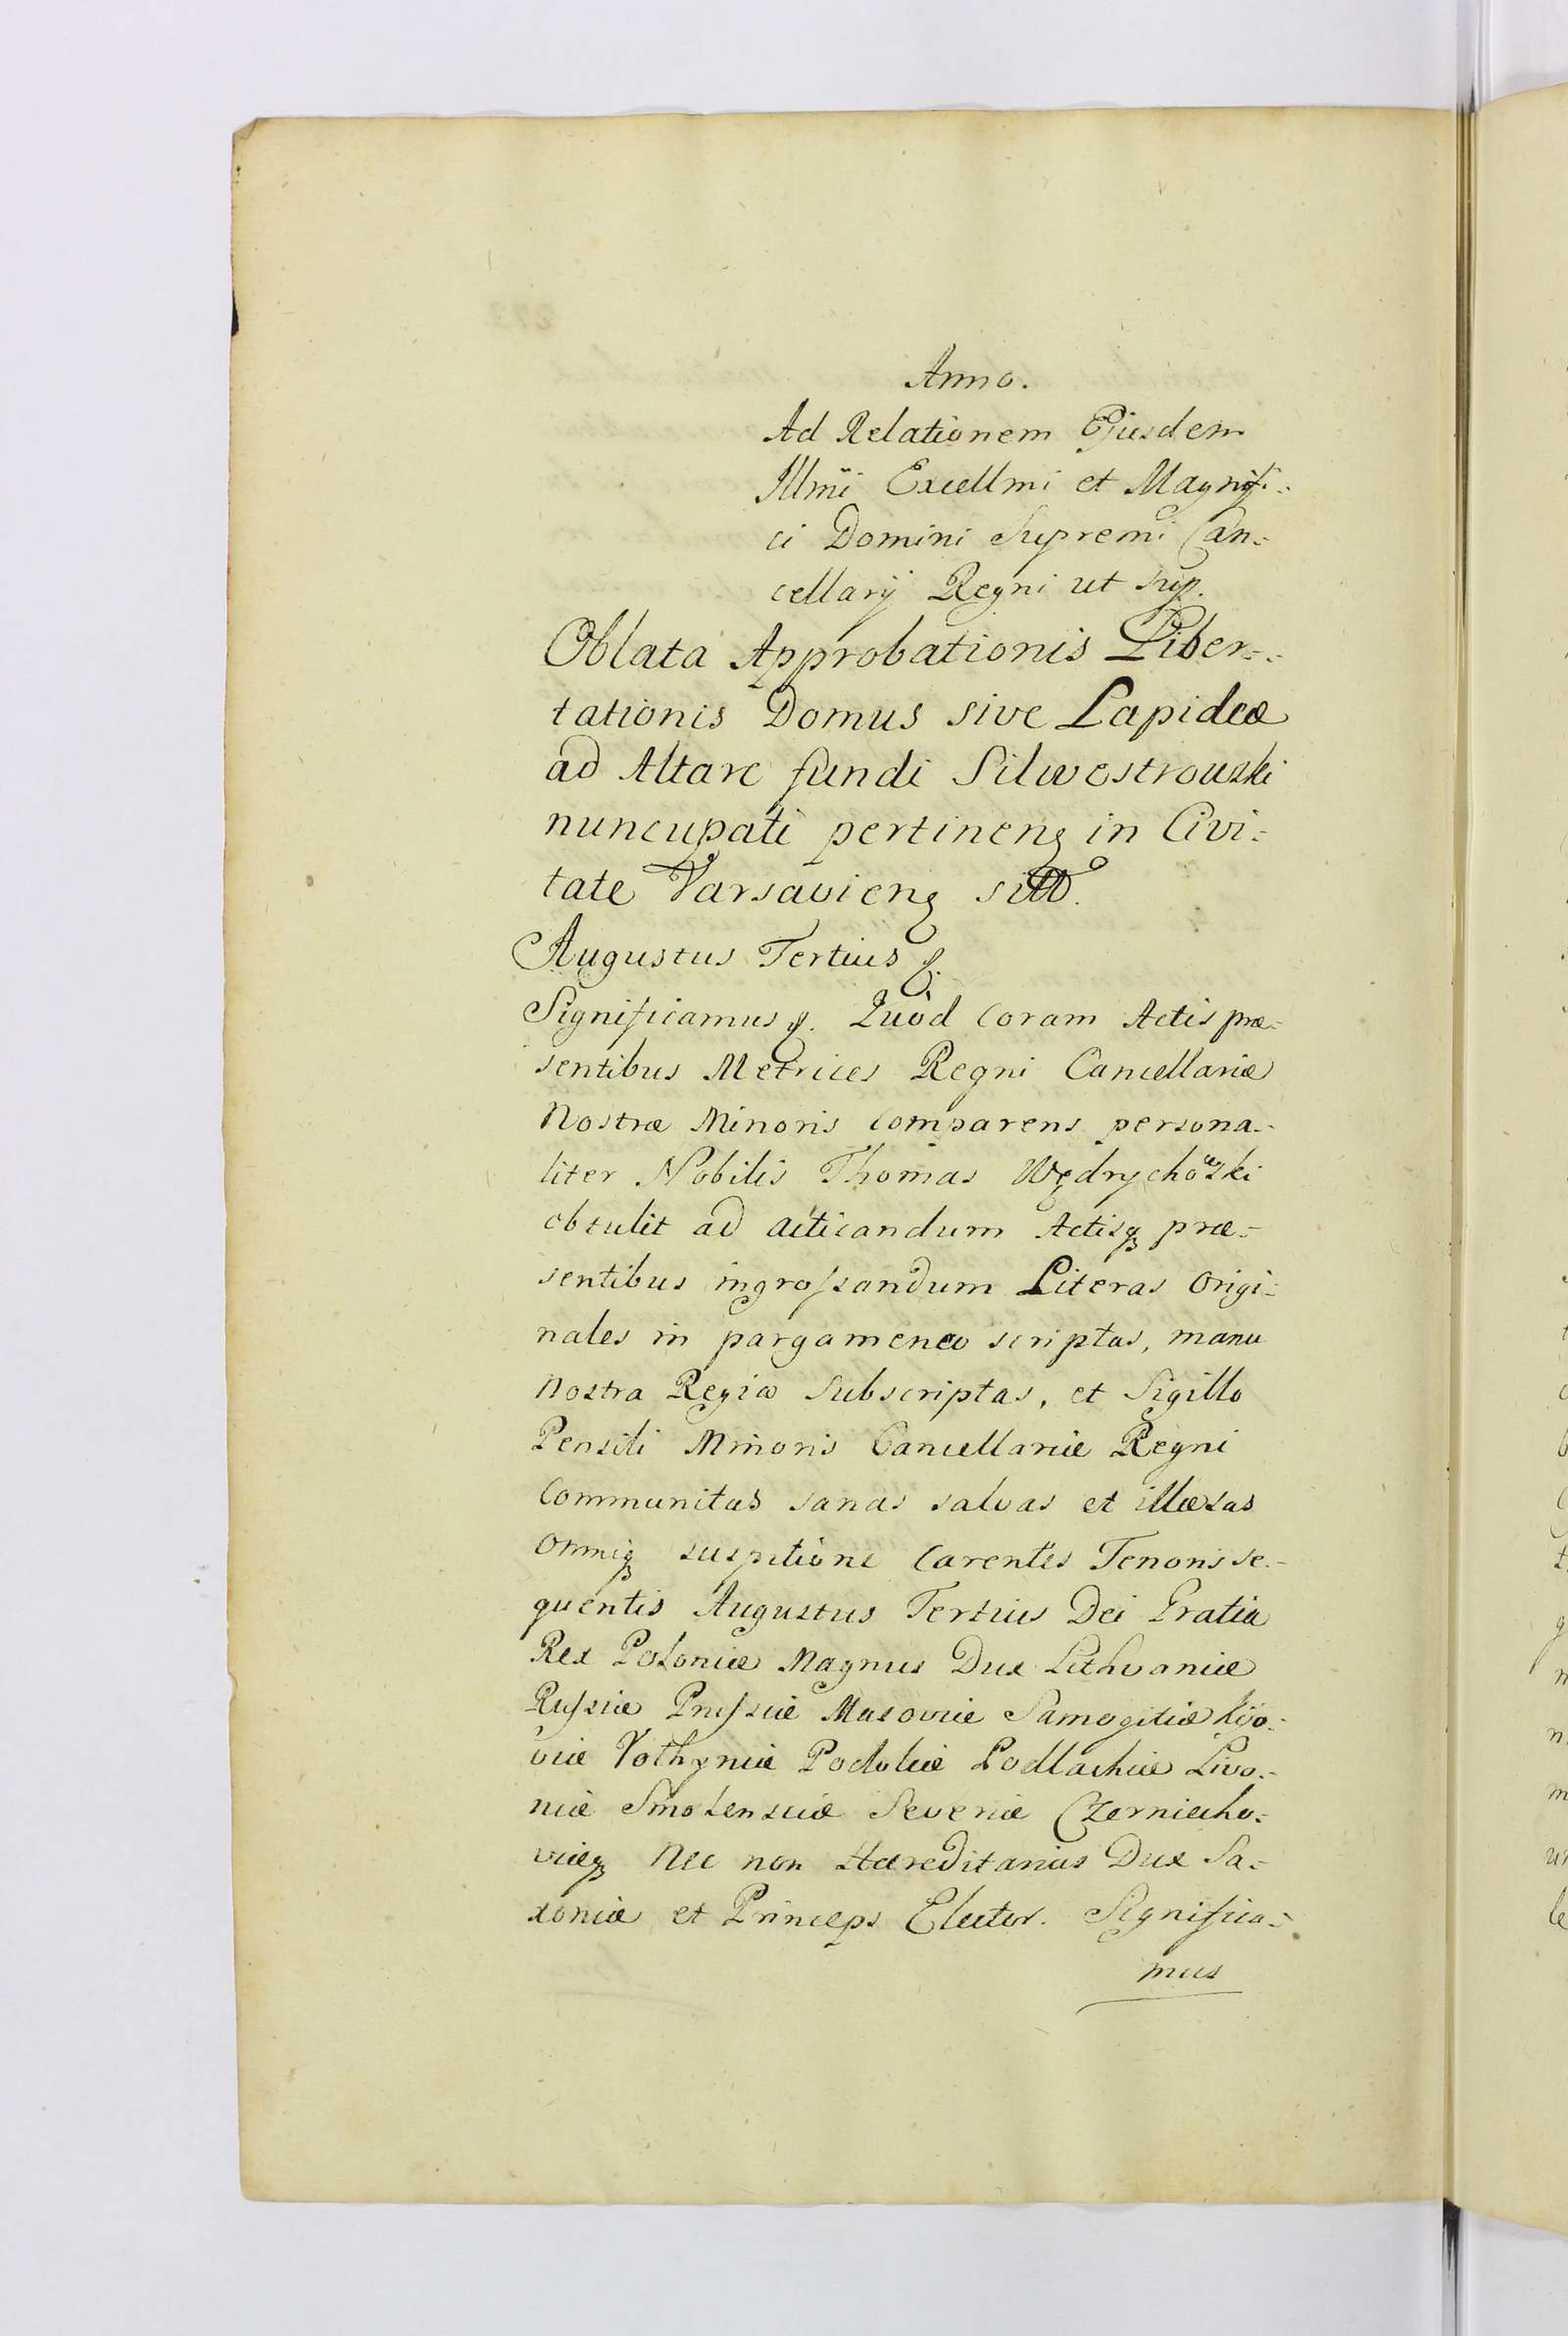 Anno.
Ad Relationem Ejusdem
Illmi Excellmi et Magnifi=
ci Domini Supremi Can=
cellarij Regni ut sup.
Oblata Approbationis Liber=
tationis Domus sive Lapideæ
ad Altare fundi Silwestrowski
nuncupati pertinenȝ in Civi=
tate Varsavienȝ
Augustus Tertius
Significamus Quòd coram Actis præ=
sentibus Metrices Regni Cancellariæ
Nostræ Minoris comparens persona=
liter Nobilis Thomas Wędrychowski
obtulit ad acticandum Actisqȝ præ=
sentibus ingrossandum Literas origi=
nales in pargameneo scriptas, manu
nostra Regia subscriptas, et Sigillo
Pensili Minoris Cancellariæ Regni
communitas sanas salvas et illæsas
omniqȝ suspitione carentes Tenoris se=
quentis Augustus Tertius Dei Gratia
Rex Poloniæ Magnus Dux Lithvaniæ
Russiæ Prussiæ Masoviæ Samogitiæ Kijo=
viæ Volhyniæ Podoliæ Podlachiæ Livo=
niæ Smolensciæ Severiæ Czerniecho=
viæqȝ Nec non Hæreditarius Dux Sa=
xoniæ et Princeps Elector. Significa=
mus